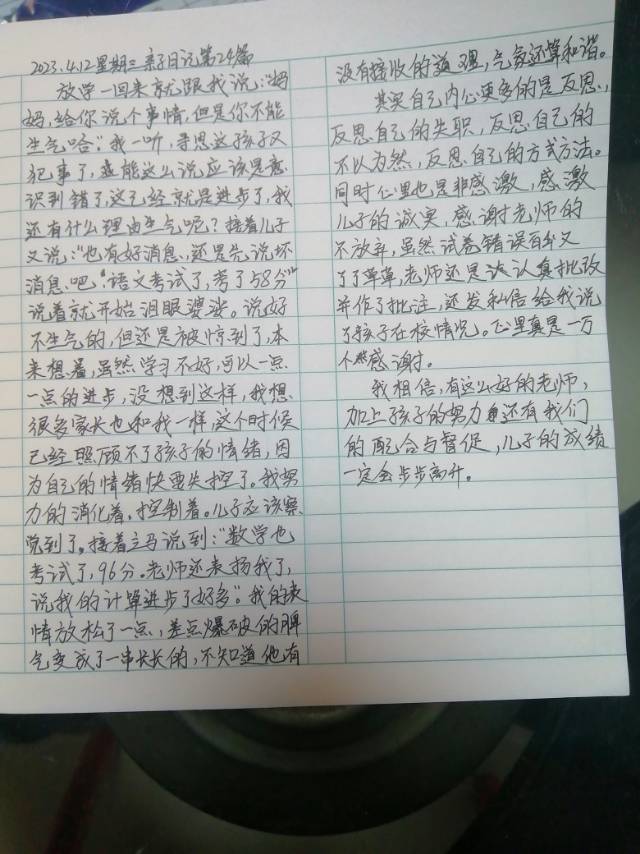 2023.4.12 星期三 亲子日记第24篇
放学一回来就跟我说:“妈
妈,给你说个事情,但是你不能
生气哈”我一听,寻思这孩子又
犯事了,能这么说应该是意
识到错了,这已经就是进步了,我
还有什么理由生气呢?接着儿子
又说:“也有好消息,还是先说坏
消息吧“语文考试了,考了58分”
说着就开始泪眼婆娑。说好
不生气的,但还是被惊到了,本
来想着,虽然学习不好,可以一点
一点的进步,没想到这样,我想
很多家长也和我一样,这个时候
已经照顾不了孩子的情绪,因
为自己的情绪快要失控了。我努
力的消化着,控制着。儿子应该察
觉到了。接着立马说到:“数学也
考试了,96分。老师还表扬我了,
说我的计算进步了好多”。我的表
情放松了一点,差点爆破的脾
气变成了一串长长的,不知道他有
没有接收的道理,气氛还算和谐。
其实自己内心更多的是反思,
反思自己的失职,反思自己的
不以为然,反思自己的方式方法。
同时心里也是非感激,感激
儿子的诚实,感谢老师的
不放弃,虽然试卷错误百分又
了了草草,老师还是认真批改
并作了批注,还发私信给我说
了孩子在校情况。心里真是一万
个感谢。
我相信,有这么好的老师,
加上孩子的努力还有我们
的配合与督促,儿子的成绩
一定会步步高升。